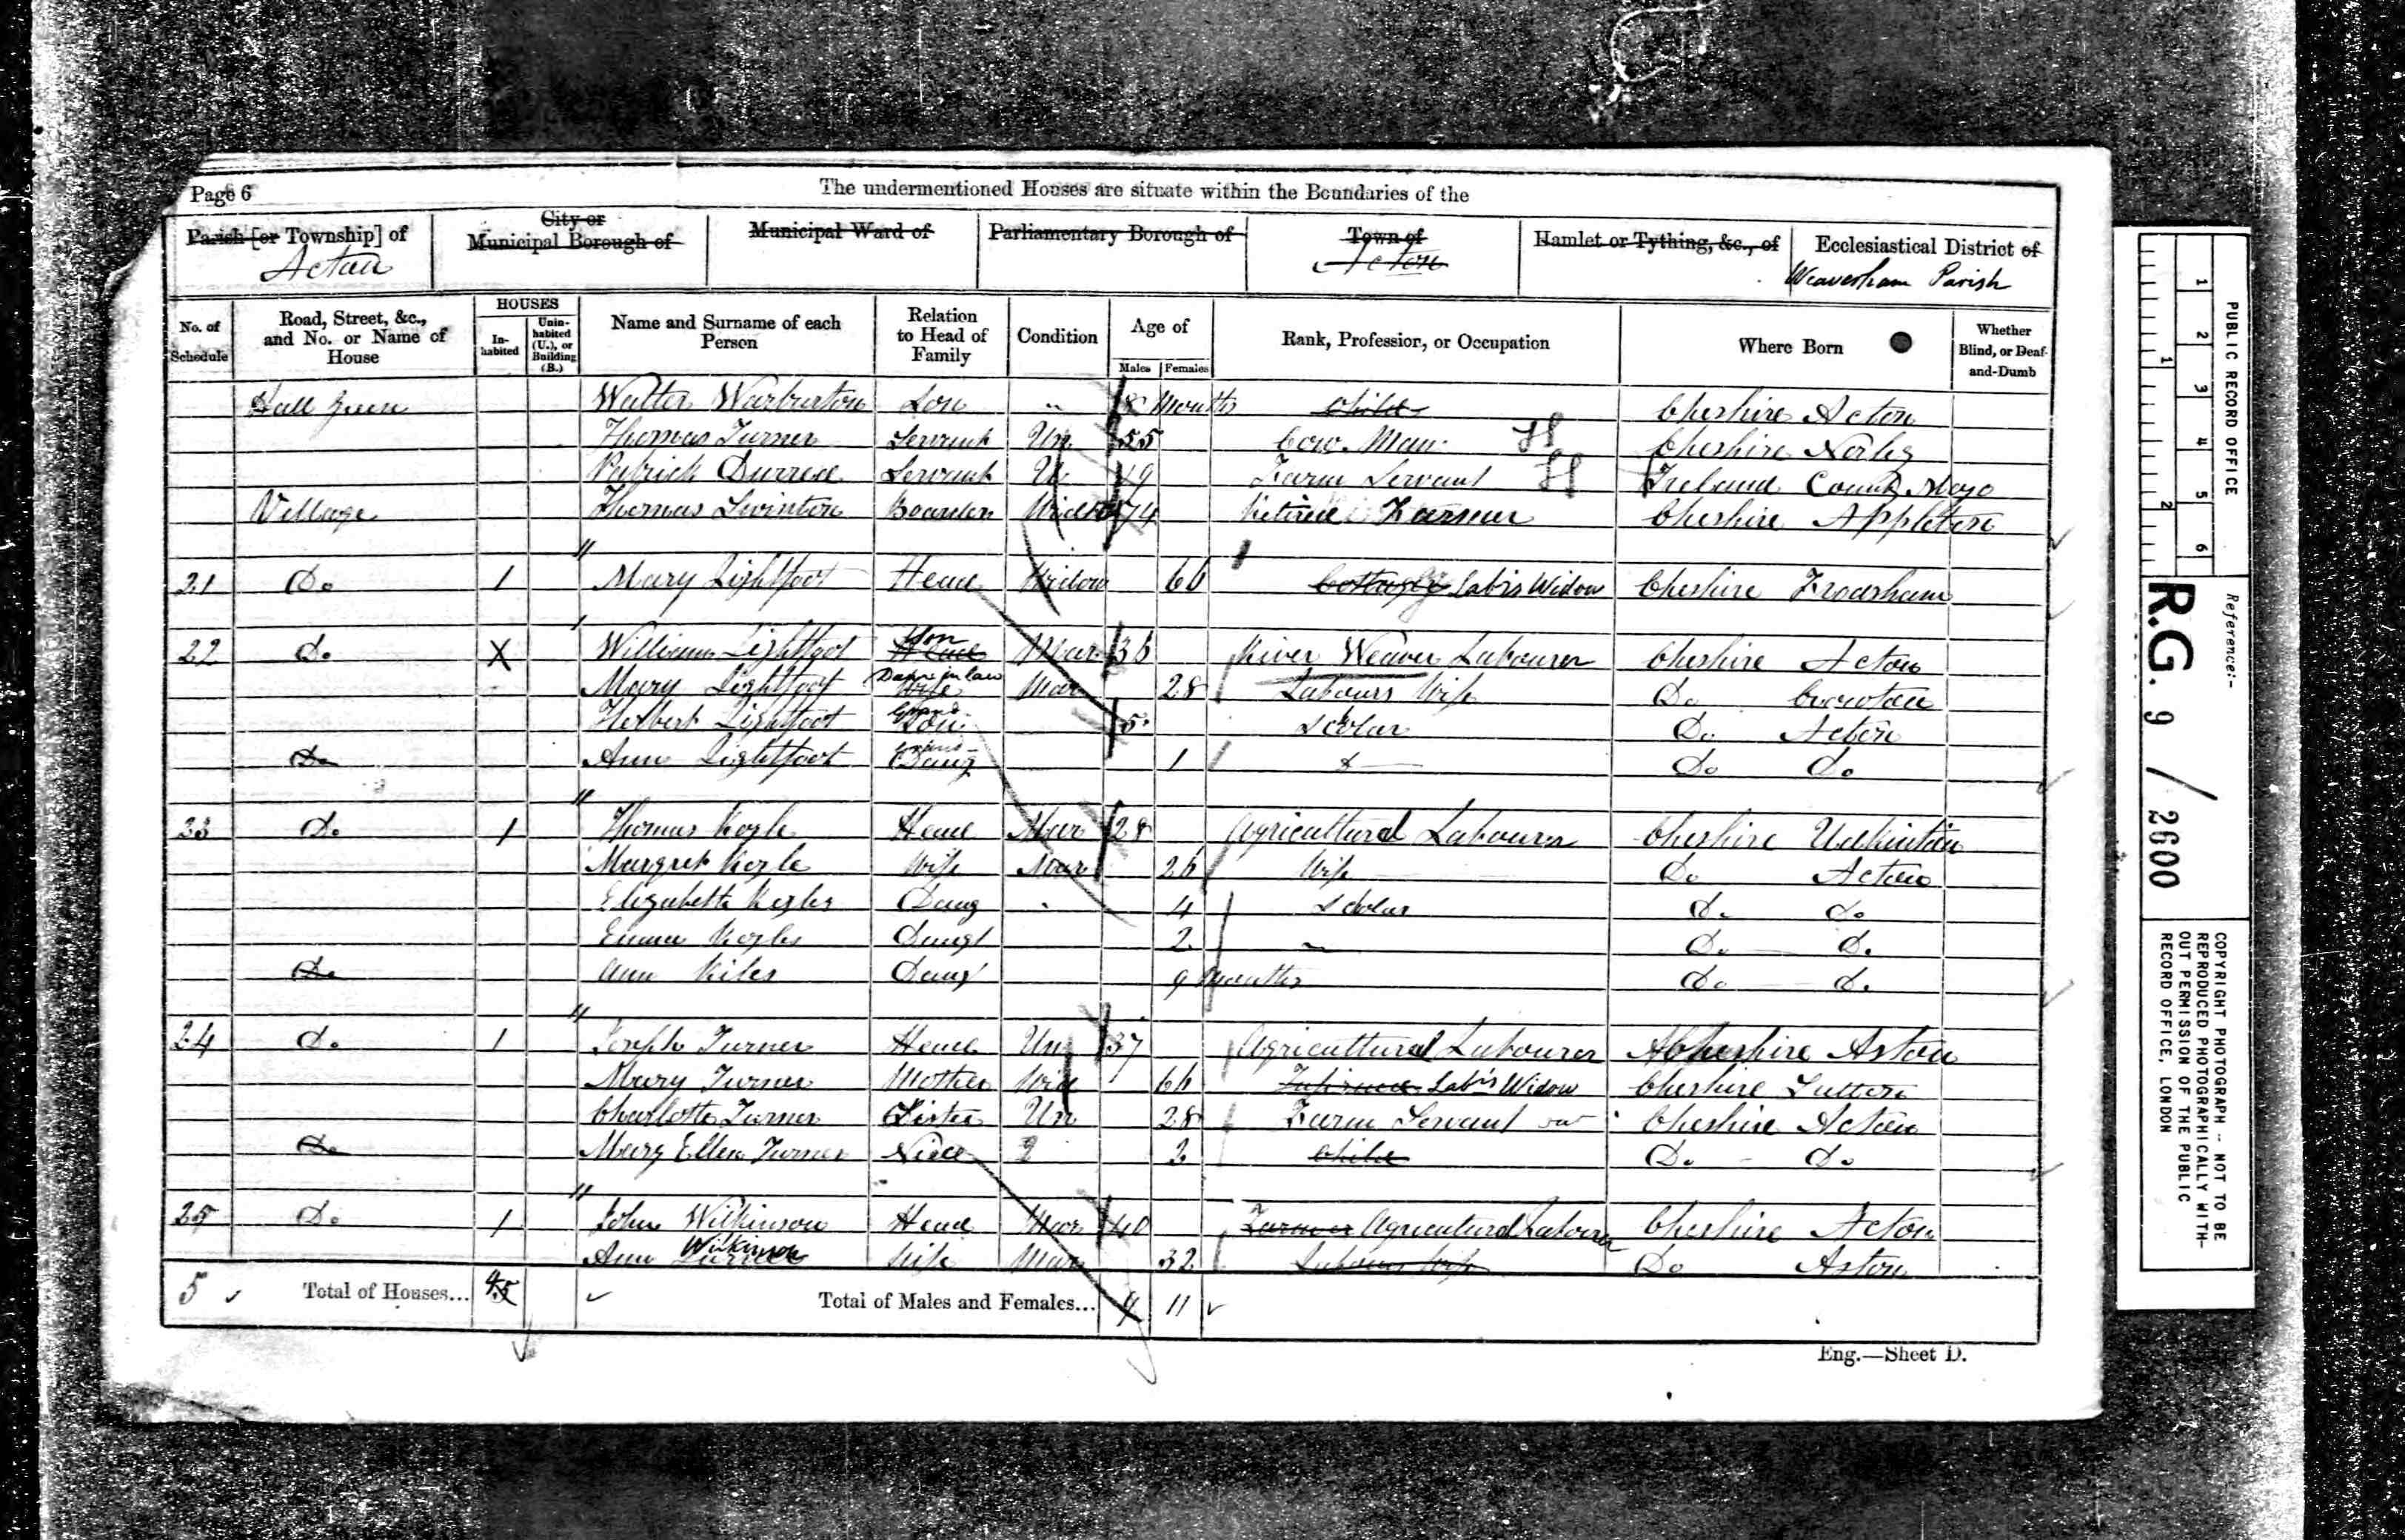 Page 6
The undermentioned Houses are situate within the Boundaries of the
Parish [or Township] of
Acton
City or
Municipal Borough of
Municipal Ward of
Parliamentary Borough of
Town of
Acton
Hamlet or Tything, &c., of
Ecclesiastical District of
Weaverham Parish
No. of Schedule
Road, Street, &c., and No. or Name of House
HOUSES
In-habited
Unin-habited (U.), or Building (B.)
Name and Surname of each Person
Relation to Head of Family
Condition
Age of
Males
Females
Rank, Profession, or Occupation
Where Born
Whether Blind, or Deaf-and-Dumb
Hall Green Walter Warburton Son 8 Months Child Cheshire Acton
Thomas Turner Servant Un 55 Cow Man Cheshire Norley
Patrick Servant Un 49 Farm Servant Ireland County Mayo
Village Thomas Swinton Boarder 74 Retired Farmer Cheshire Appleton
21 Do 1 Mary Lightfoot Head Widow 66 Lab's Widow Cheshire Frodsham
22 Do X William Lightfoot Son Head Mar 36 River Weaver Labourer Cheshire Acton
Mary Lightfoot in law Wife Mar 28 Labours Wife Do Crowton
Herbert Lightfoot Grand Son 5 Scolar Do Acton
Do Ann Lightfoot Grand Daug 1 Do Do
23 Do 1 Thomas Head Mar 28 Agricultural Labourer Cheshire Utkinton
Margret Wife Mar 26 Wife Do Acton
Daug 4 Scolar Do Do
Emma Daugt 2 Do Do
Do Ann Daug 9 Months Do Do
24 Do 1 Joseph Turner Head Un 37 Agricultural Labourer Cheshire
Mary Turner Mother Wid 66 Lab's Widow Cheshire Sutton
Charlotte Turner Sister Un 28 Farm Servant Cheshire Acton
Do Mary Ellen Turner Niece 2 Child Do Do
25 Do 1 John Wilkinson Head Mar 40 Farmer Agricultural Labourer Cheshire Acton
Ann Wilkinson Wife Mar 32 Labours Wife Do Aston
5 Total of Houses... 4 5
Total of Males and Females... 9 11
Eng.—Sheet D.
PUBLIC RECORD OFFICE
1 2 3 4 5 6
1 2
Reference:-
R.G. 9 / 2600
COPYRIGHT PHOTOGRAPH – NOT TO BE
REPRODUCED PHOTOGRAPHICALLY WITH-
OUT PERMISSION OF THE PUBLIC
RECORD OFFICE, LONDON